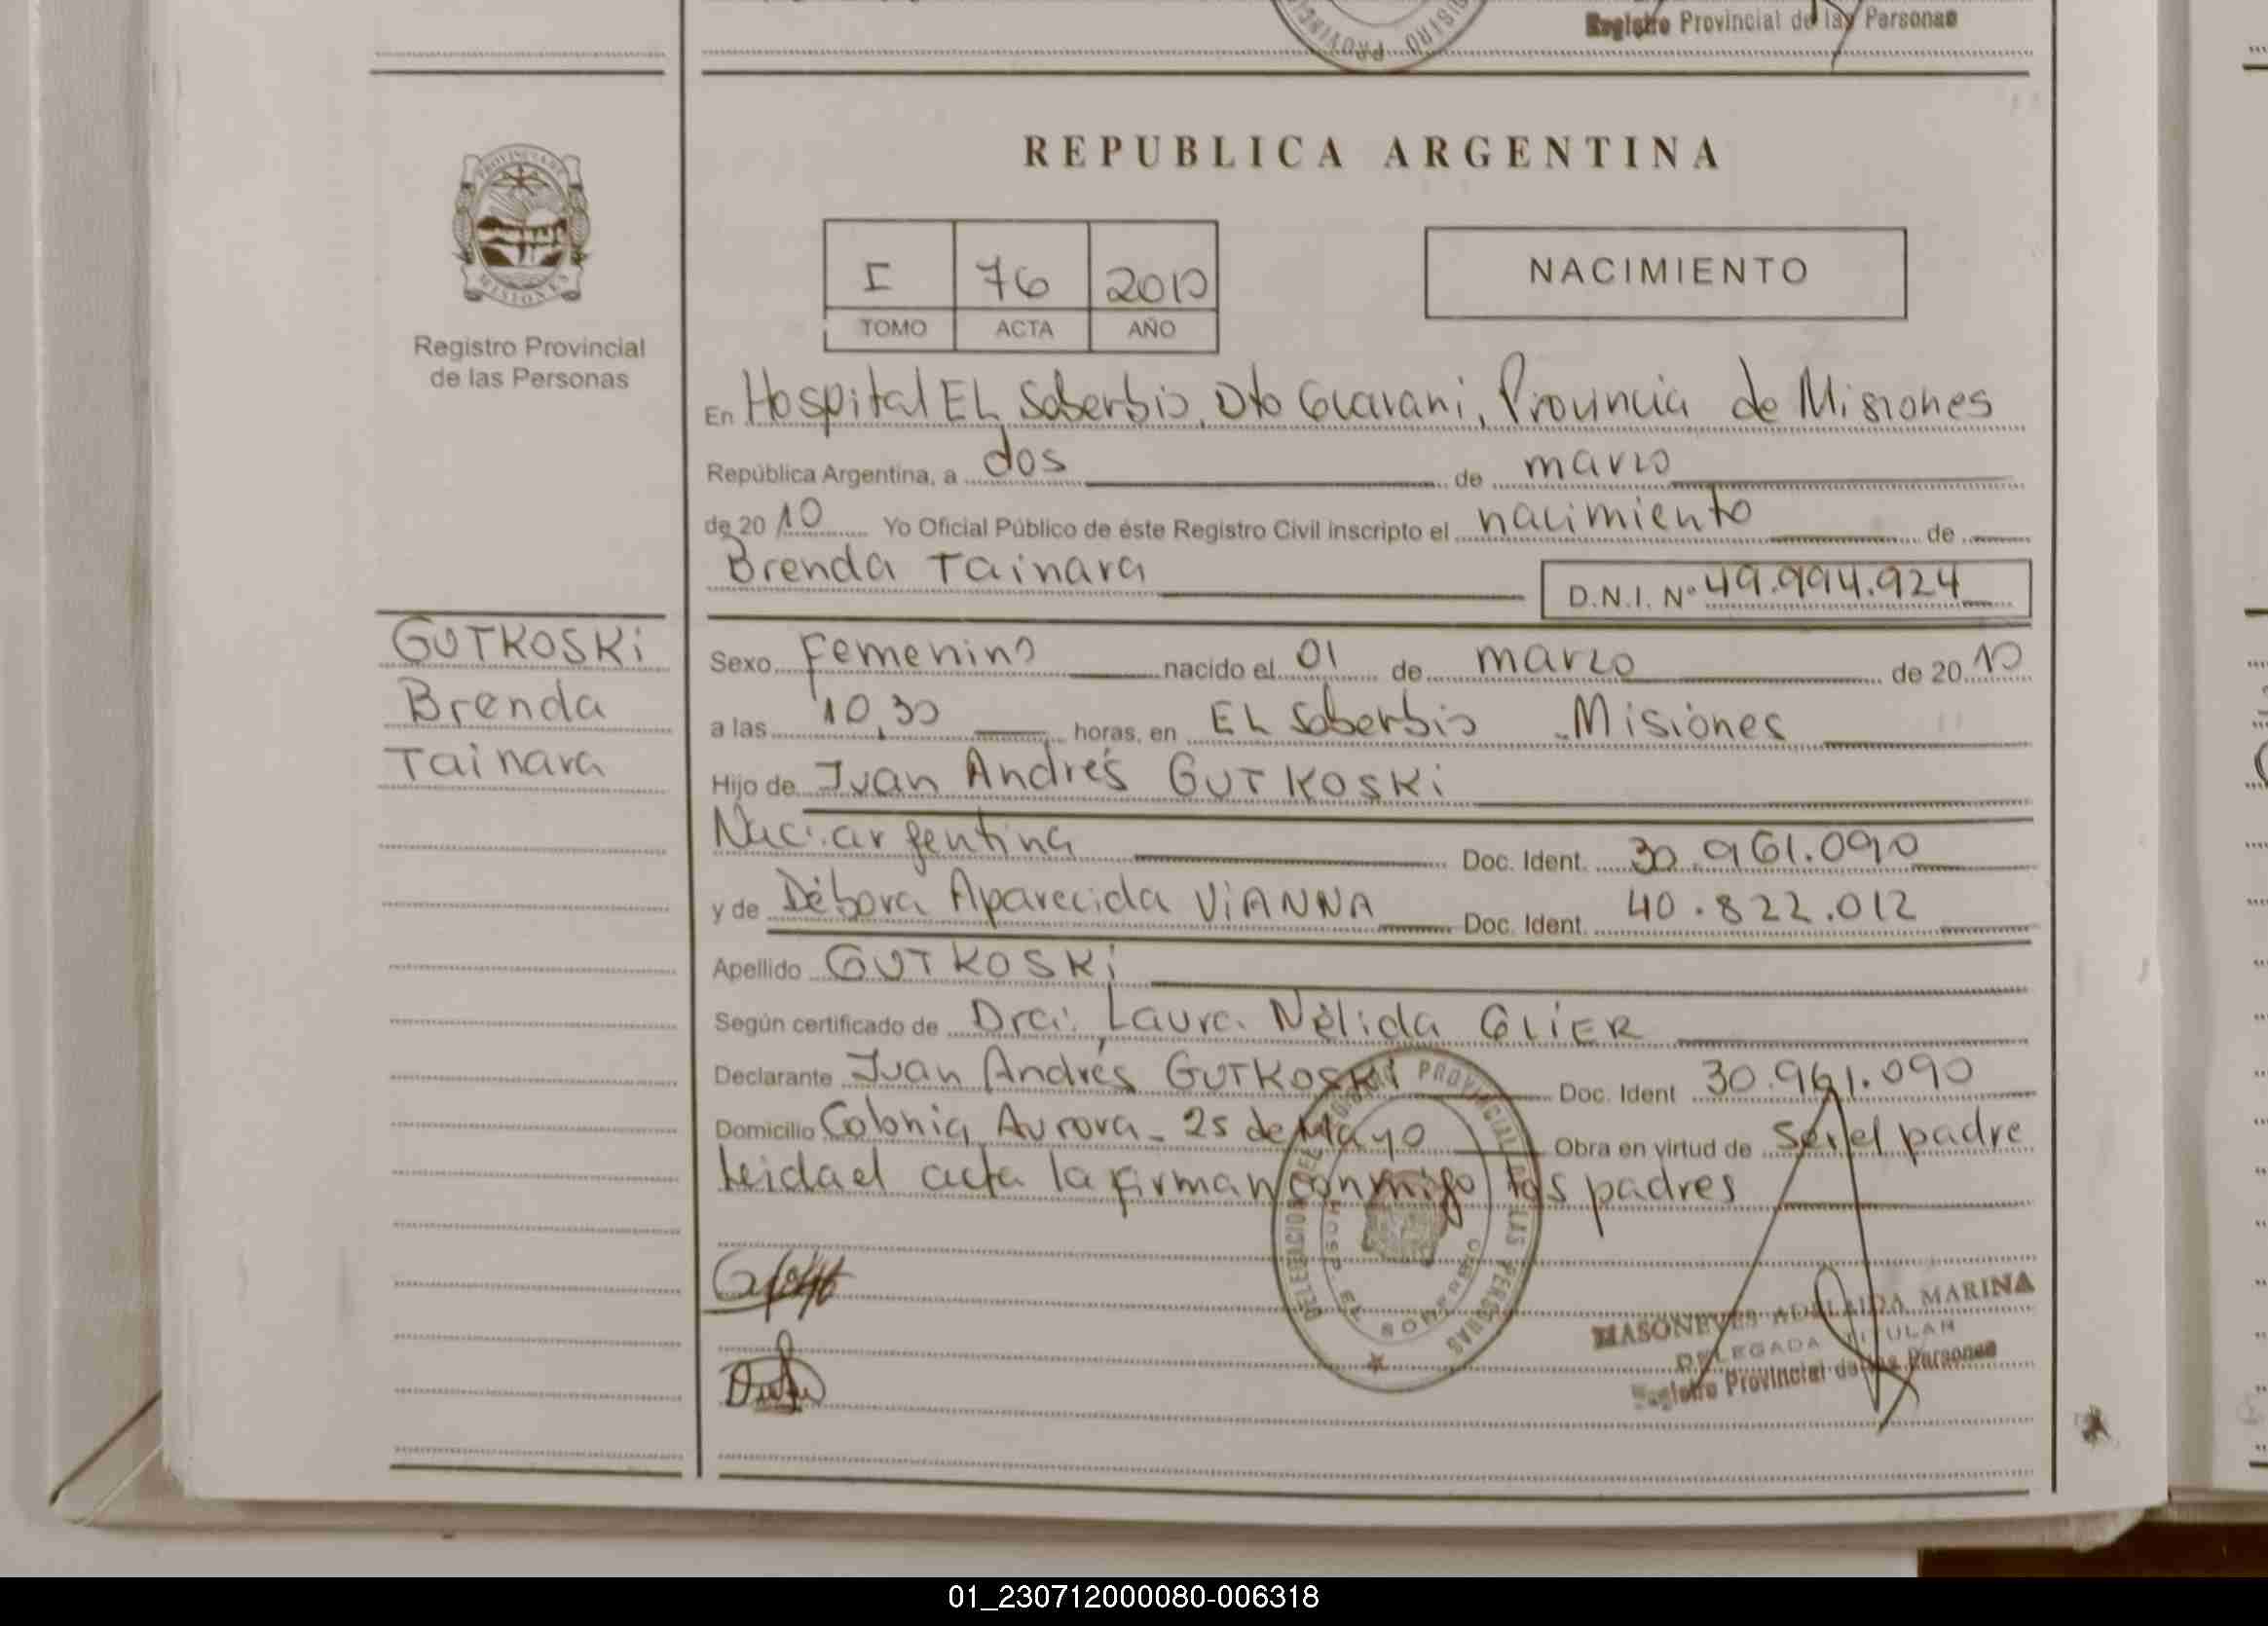 Registro Provincial de las Personas
REPUBLICA ARGENTINA
PROVINCIA DE MISIONES
Registro Provincial
de las Personas
I 76 2010
TOMO ACTA AÑO
NACIMIENTO
En Hospital EL Soberbio, Dto Guarani, Provincia de Misiones
República Argentina, a dos de marzo
de 2010 Yo Oficial Público de éste Registro Civil inscripto el nacimiento de
Brenda Tainara D.N.I. Nº 49.994.924
GUTKOSKi
Brenda
Tainara
Sexo Femenino nacido el 01 de marzo de 2010
a las 10,30 horas, en EL Soberbio - Misiones
Hijo de Juan Andrés GUTKOSKi
Nac. argentina Doc. Ident. 30.961.090
y de Débora Aparecida ViANNA Doc. Ident. 40.822.012
Apellido GUTKOSKi
Según certificado de Dra. Laura Nélida GLiER
Declarante Juan Andrés GUTKOSKi Doc. Ident 30.961.090
Domicilio Colonia Aurora - 25 de Mayo Obra en virtud de ser el padre
Leida el acta la firman conmigo los padres
DELEGACION DEL REGISTRO PROVINCIAL DE LAS PERSONAS
EL SOBERBIO
MASONEVES ADELAIDA MARINA
DELEGADA TITULAR
Registro Provincial de las Personas
01_230712000080-006318